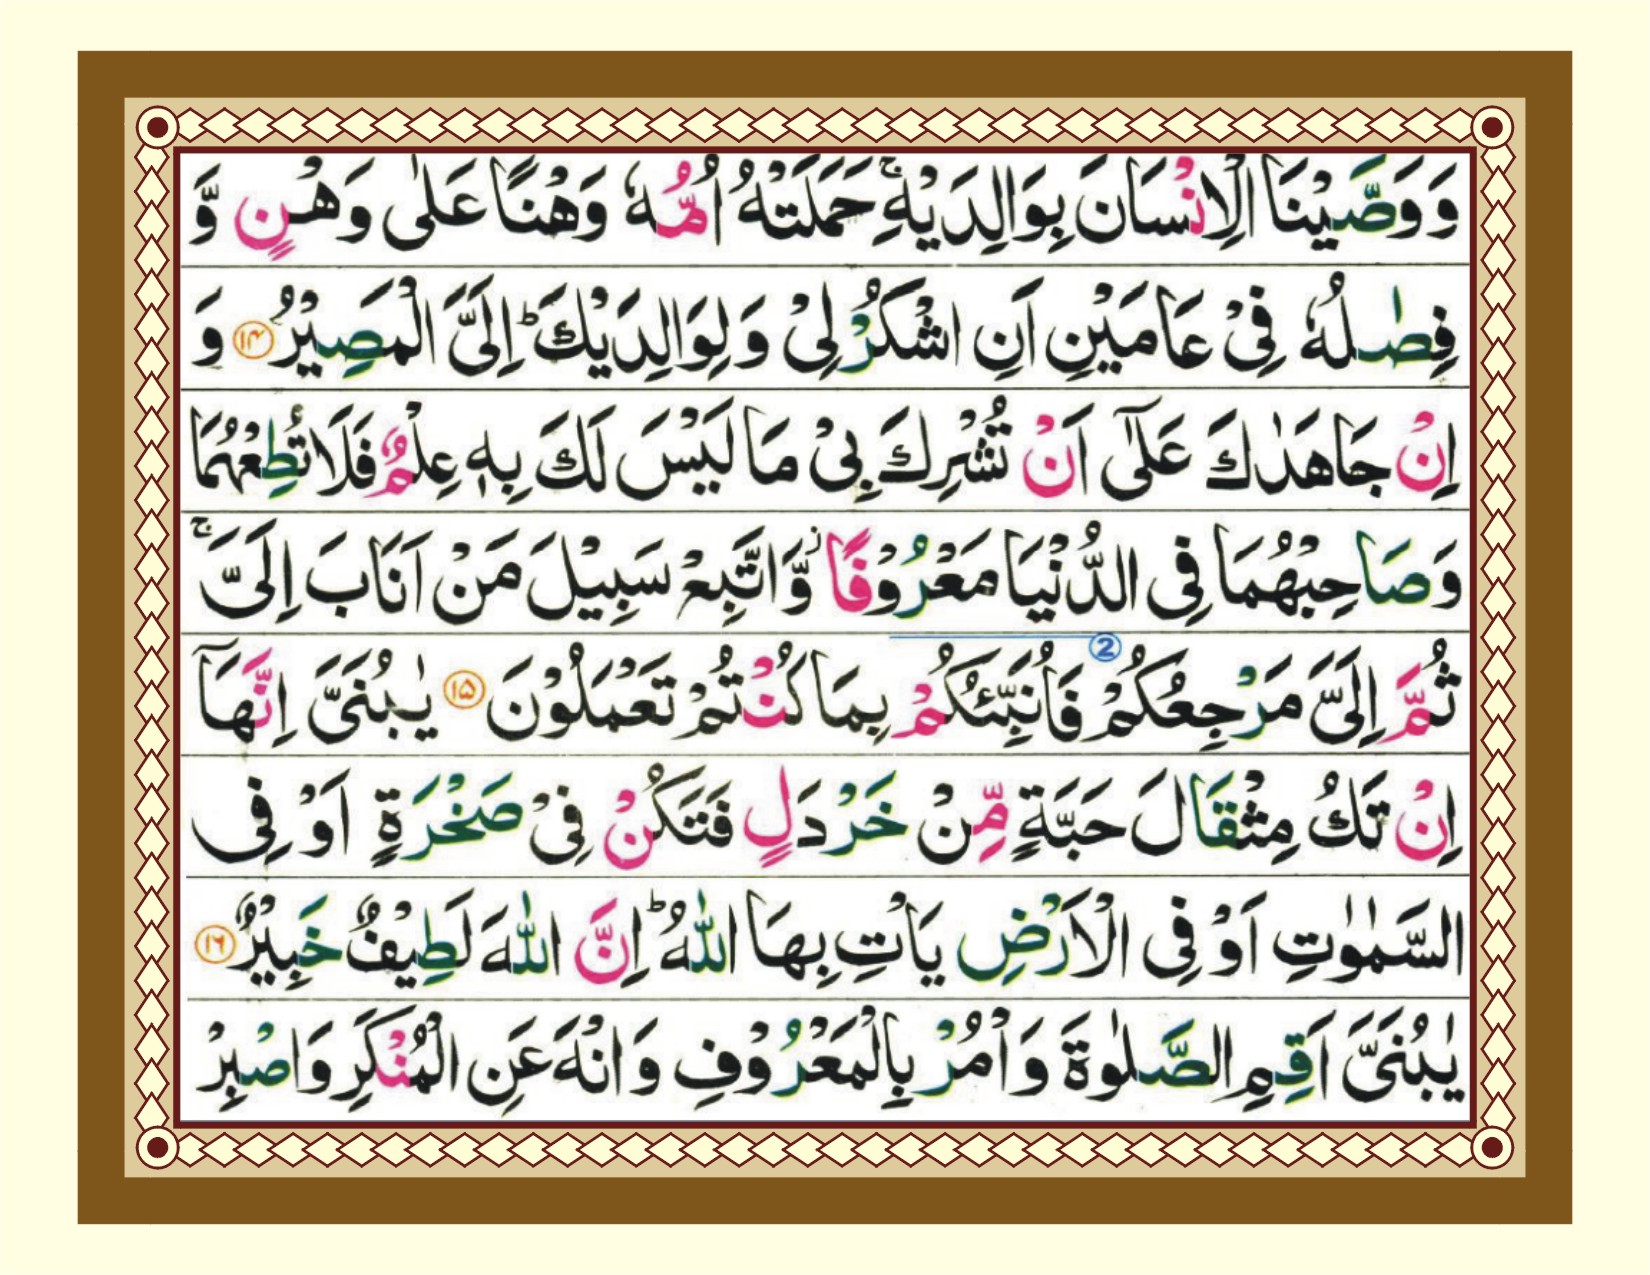 وَوَصَّيْنَا الْاِنْسَانَ بِوَالِدَيْهِ ۚ حَمَلَتْهُ اُمُّهٗ وَهْنًا عَلٰى وَهْنٍ وَّ
فِصٰلُهٗ فِىْ عَامَيْنِ اَنِ اشْكُرْ لِىْ وَلِوَالِدَيْكَ ؕ اِلَىَّ الْمَصِيْرُ ۝۱۴ وَ
اِنْ جَاهَدٰكَ عَلٰٓى اَنْ تُشْرِكَ بِىْ مَا لَيْسَ لَكَ بِهٖ عِلْمٌ فَلَا تُطِعْهُمَا
وَصَاحِبْهُمَا فِى الدُّنْيَا مَعْرُوْفًا ؗ وَّاتَّبِعْ سَبِيْلَ مَنْ اَنَابَ اِلَىَّ ۚ
2
ثُمَّ اِلَىَّ مَرْجِعُكُمْ فَاُنَبِّئُكُمْ بِمَا كُنْتُمْ تَعْمَلُوْنَ ۝۱۵ يٰبُنَىَّ اِنَّهَاۤ
اِنْ تَكُ مِثْقَالَ حَبَّةٍ مِّنْ خَرْدَلٍ فَتَكُنْ فِىْ صَخْرَةٍ اَوْ فِى
السَّمٰوٰتِ اَوْ فِى الْاَرْضِ يَاْتِ بِهَا اللّٰهُ ؕ اِنَّ اللّٰهَ لَطِيْفٌ خَبِيْرٌ ۝۱۶
يٰبُنَىَّ اَقِمِ الصَّلٰوةَ وَاْمُرْ بِالْمَعْرُوْفِ وَانْهَ عَنِ الْمُنْكَرِ وَاصْبِرْ